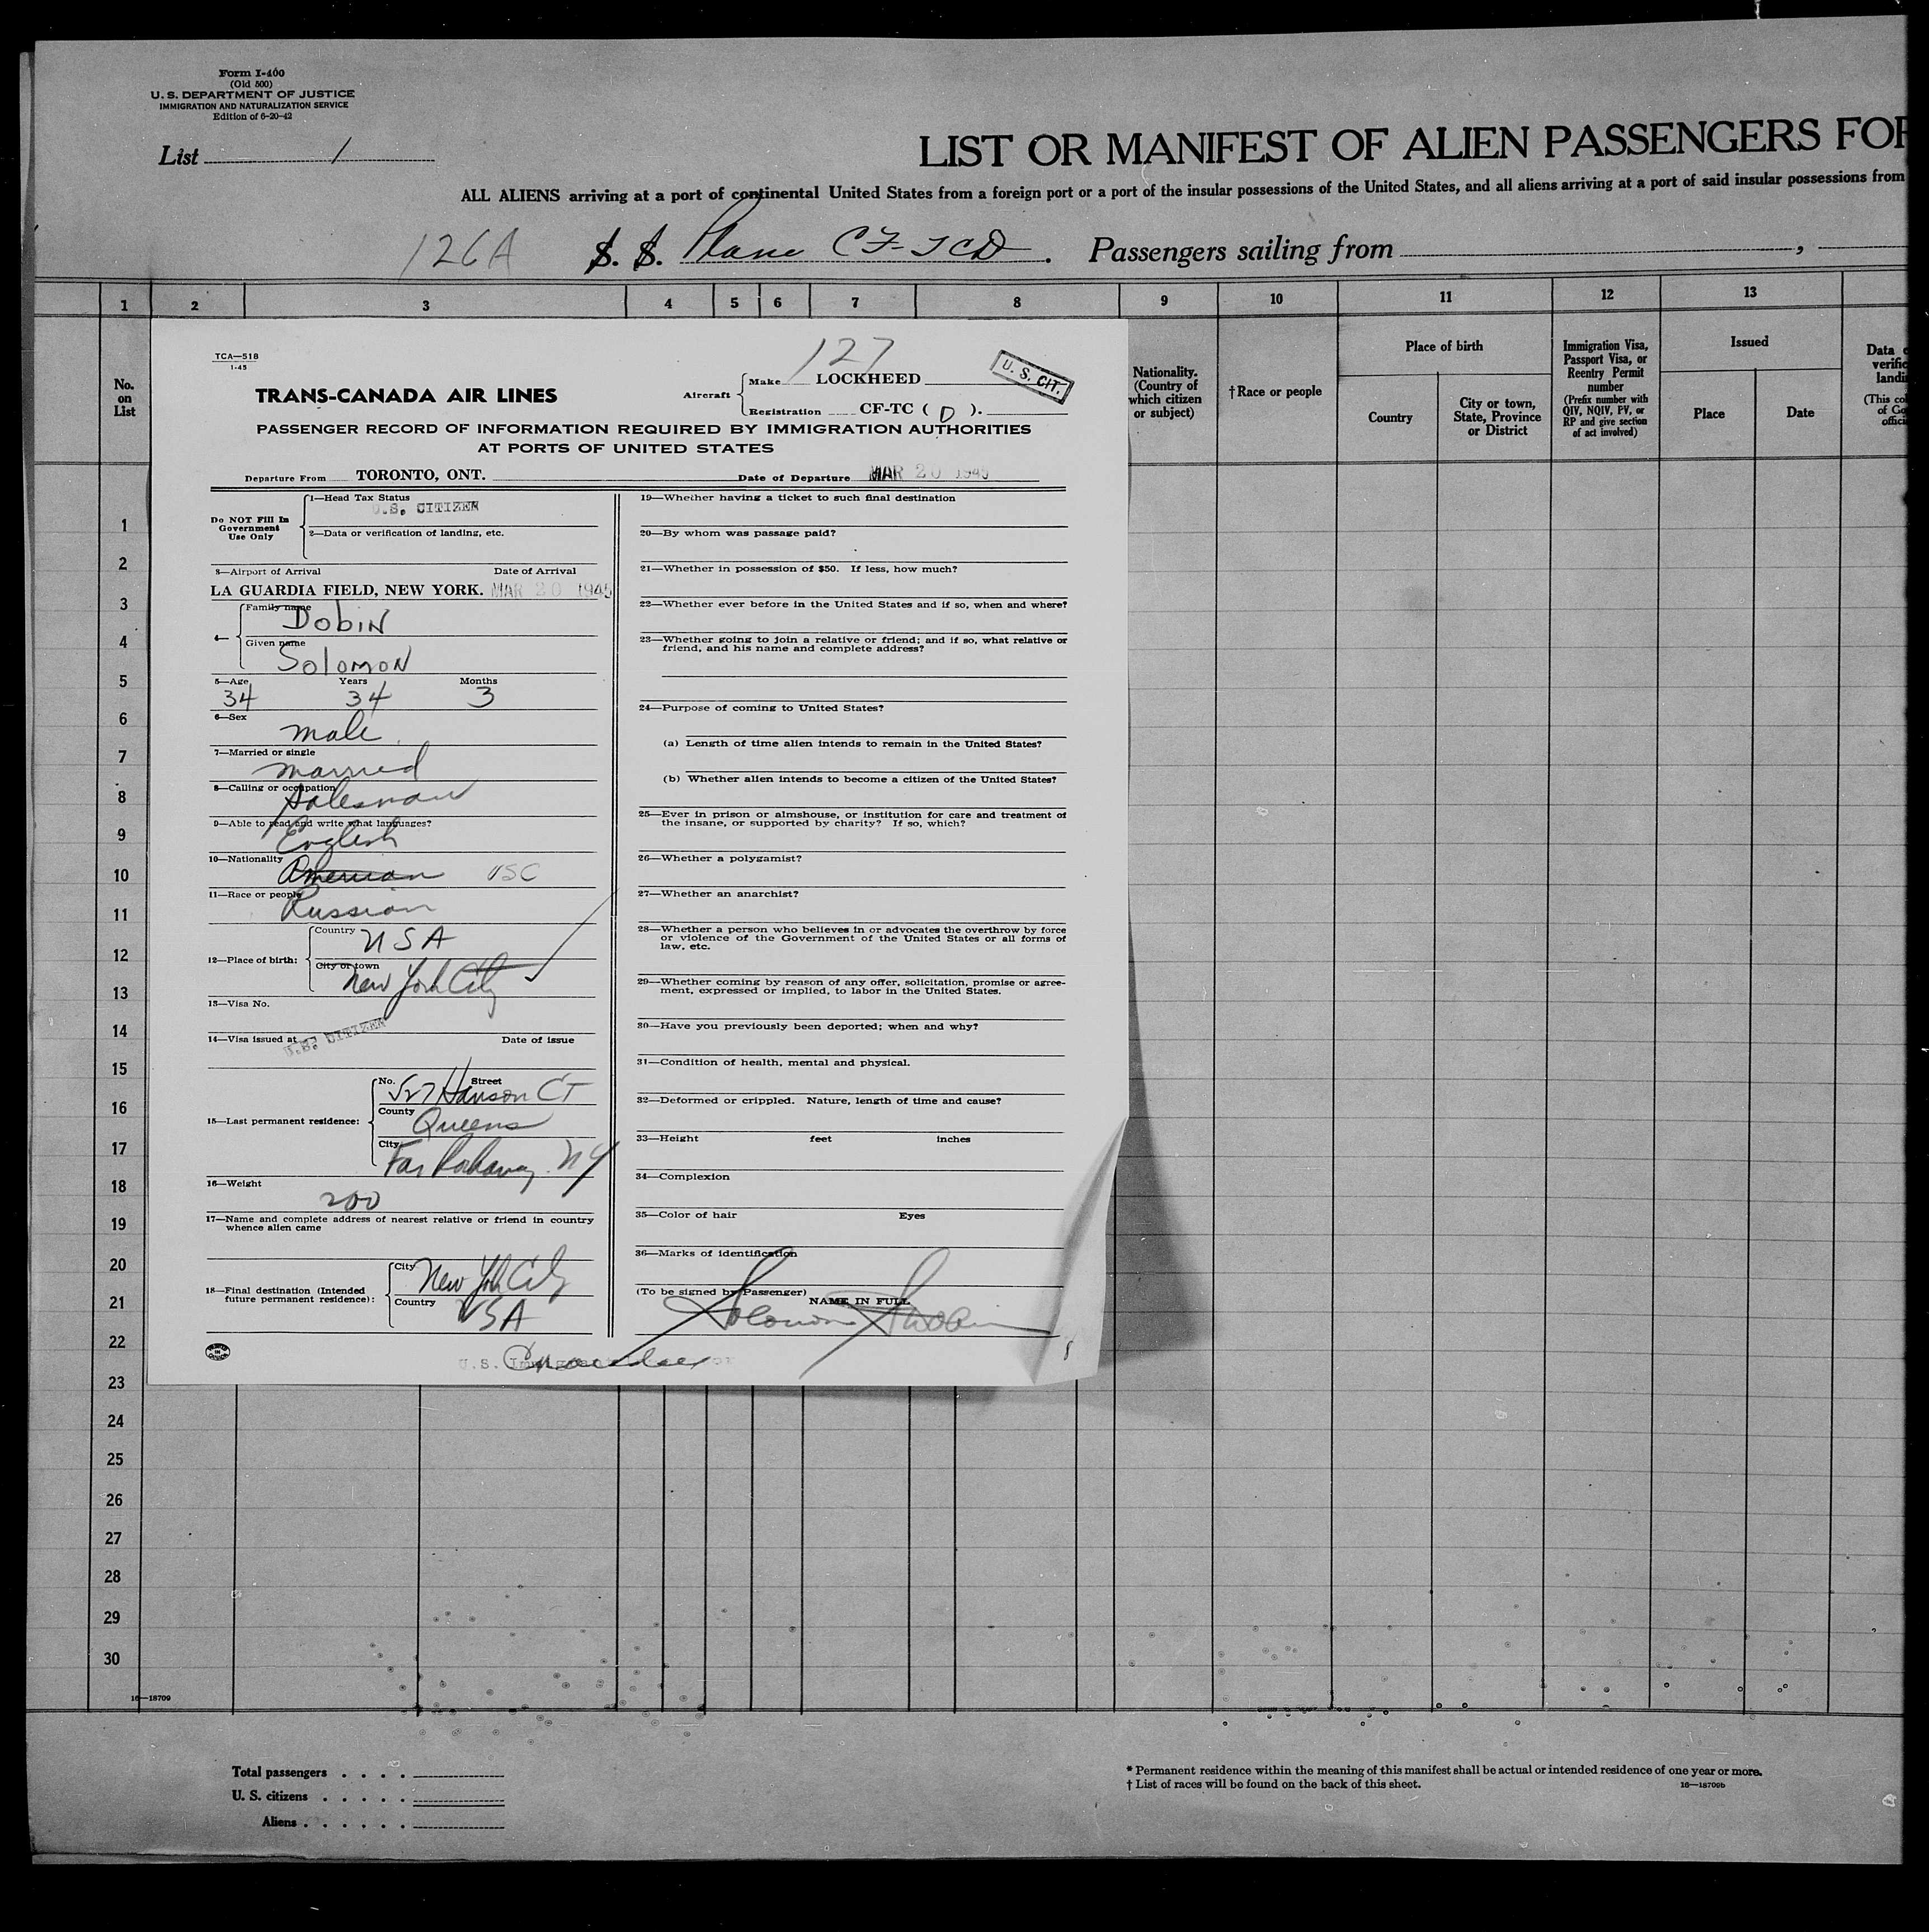 Form I-400
(Old 500)
U. S. DEPARTMENT OF JUSTICE
IMMIGRATION AND NATURALIZATION SERVICE
Edition of 6-20-42
List 1
LIST OR MANIFEST OF ALIEN PASSENGERS FOR
ALL ALIENS arriving at a port of continental United States from a foreign port or a port of the insular possessions of the United States, and all aliens arriving at a port of said insular possessions from
126A S. S. Plane CF-TCD. Passengers sailing from ,
1 2 3 4 5 6 7 8 9 10 11 12 13
No. on List
Nationality. (Country of which citizen or subject)
† Race or people
Place of birth
Country
City or town, State, Province or District
Immigration Visa, Passport Visa, or Reentry Permit number
(Prefix number with QIV, NQIV, PV, or RP and give section of act involved)
Issued
Place
Date
Data
(This
TCA—518
1-45
127
U. S. CIT.
TRANS-CANADA AIR LINES
Aircraft
Make LOCKHEED
Registration CF-TC ( D ).
PASSENGER RECORD OF INFORMATION REQUIRED BY IMMIGRATION AUTHORITIES
AT PORTS OF UNITED STATES
Departure From TORONTO, ONT. Date of Departure MAR 20 1945
Do NOT Fill In Government Use Only
1—Head Tax Status
U.S. CITIZEN
2—Data or verification of landing, etc.
3—Airport of Arrival Date of Arrival
LA GUARDIA FIELD, NEW YORK. MAR 20 1945
4—
Family name
Dobin
Given name
Solomon
5—Age Years Months
34 34 3
6—Sex
male
7—Married or single
married
8—Calling or occupation
Salesman
9—Able to read and write what languages?
English
10—Nationality
American USC
11—Race or people
Russian
12—Place of birth:
Country
USA
City or town
New York City
13—Visa No.
14—Visa issued at Date of issue
U.S. CITIZEN
15—Last permanent residence:
No. Street
527 Hanson CT
County
Queens
City
Far Rockaway. NY
16—Weight
200
17—Name and complete address of nearest relative or friend in country
whence alien came
18—Final destination (Intended
future permanent residence):
City
New York City
Country
USA
19—Whether having a ticket to such final destination
20—By whom was passage paid?
21—Whether in possession of $50. If less, how much?
22—Whether ever before in the United States and if so, when and where?
23—Whether going to join a relative or friend; and if so, what relative or
friend, and his name and complete address?
24—Purpose of coming to United States?
(a) Length of time alien intends to remain in the United States?
(b) Whether alien intends to become a citizen of the United States?
25—Ever in prison or almshouse, or institution for care and treatment of
the insane, or supported by charity? If so, which?
26—Whether a polygamist?
27—Whether an anarchist?
28—Whether a person who believes in or advocates the overthrow by force
or violence of the Government of the United States or all forms of
law, etc.
29—Whether coming by reason of any offer, solicitation, promise or agree-
ment, expressed or implied, to labor in the United States.
30—Have you previously been deported; when and why?
31—Condition of health, mental and physical.
32—Deformed or crippled. Nature, length of time and cause?
33—Height feet inches
34—Complexion
35—Color of hair Eyes
36—Marks of identification
(To be signed by Passenger)
NAME IN FULL
Solomon Dobin
U.S.
1
2
3
4
5
6
7
8
9
10
11
12
13
14
15
16
17
18
19
20
21
22
23
24
25
26
27
28
29
30
16—18709
Total passengers . . . .
U. S. citizens . . . . .
Aliens . . . . . .
* Permanent residence within the meaning of this manifest shall be actual or intended residence of one year or more.
† List of races will be found on the back of this sheet.
16—18709b